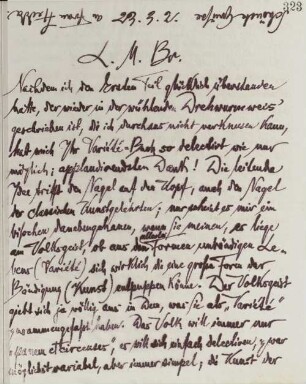 323
23. 3. 2.
L. M. Br.
Nachdem ich den ersten Teil glücklich überstanden
hatte, der wieder in der wühlenden Drehwurmweis
geschrieben ist, die ich durchaus nicht verknusen kann,
hat mich Ihr Variété-Buch so delectirt wie nur
möglich; applaudirendsten Dank! Die leitende
Idee trifft den Nagel auf den Kopf, auch den Nagel
der classischen Kunstgelehrten; nur scheint es mir ein
bisschen danebengehauen, wenn Sie meinen, es liege
am Volksgeist, ob aus den Formen unbändigen Le-
bens (Variété) sich wirklich die eine große Form der
Bändigung (Kunst) entpuppen könne. Der Volksgeist
giebt sich ja völlig aus in Dem, was Sie als "Variété"
zusammengefasst haben. Das Volk will immer nur
"panem et circenses", er will sich einfach delectiren, zwar
möglichst variabel, aber immer simpel, die Kunst der